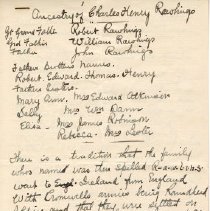 Ancestry of Charles Henry Rawlings
Gt Grand Father Robert Rawlings
Gnd Father William Rawlings
Father John Rawlings
Fathers brothers names.
Robert. Edward. Thomas. Henry
Fathers sisters.
Mary Ann, Mrs Edward Atkinson
Sally Mrs Wm Dann
Eliza - Mrs James Robinson
Rebecca - Mrs
There is a tradition that the family
who name was then spelled
went to Ireland from England
with Cromwells armies
and that they were settled on